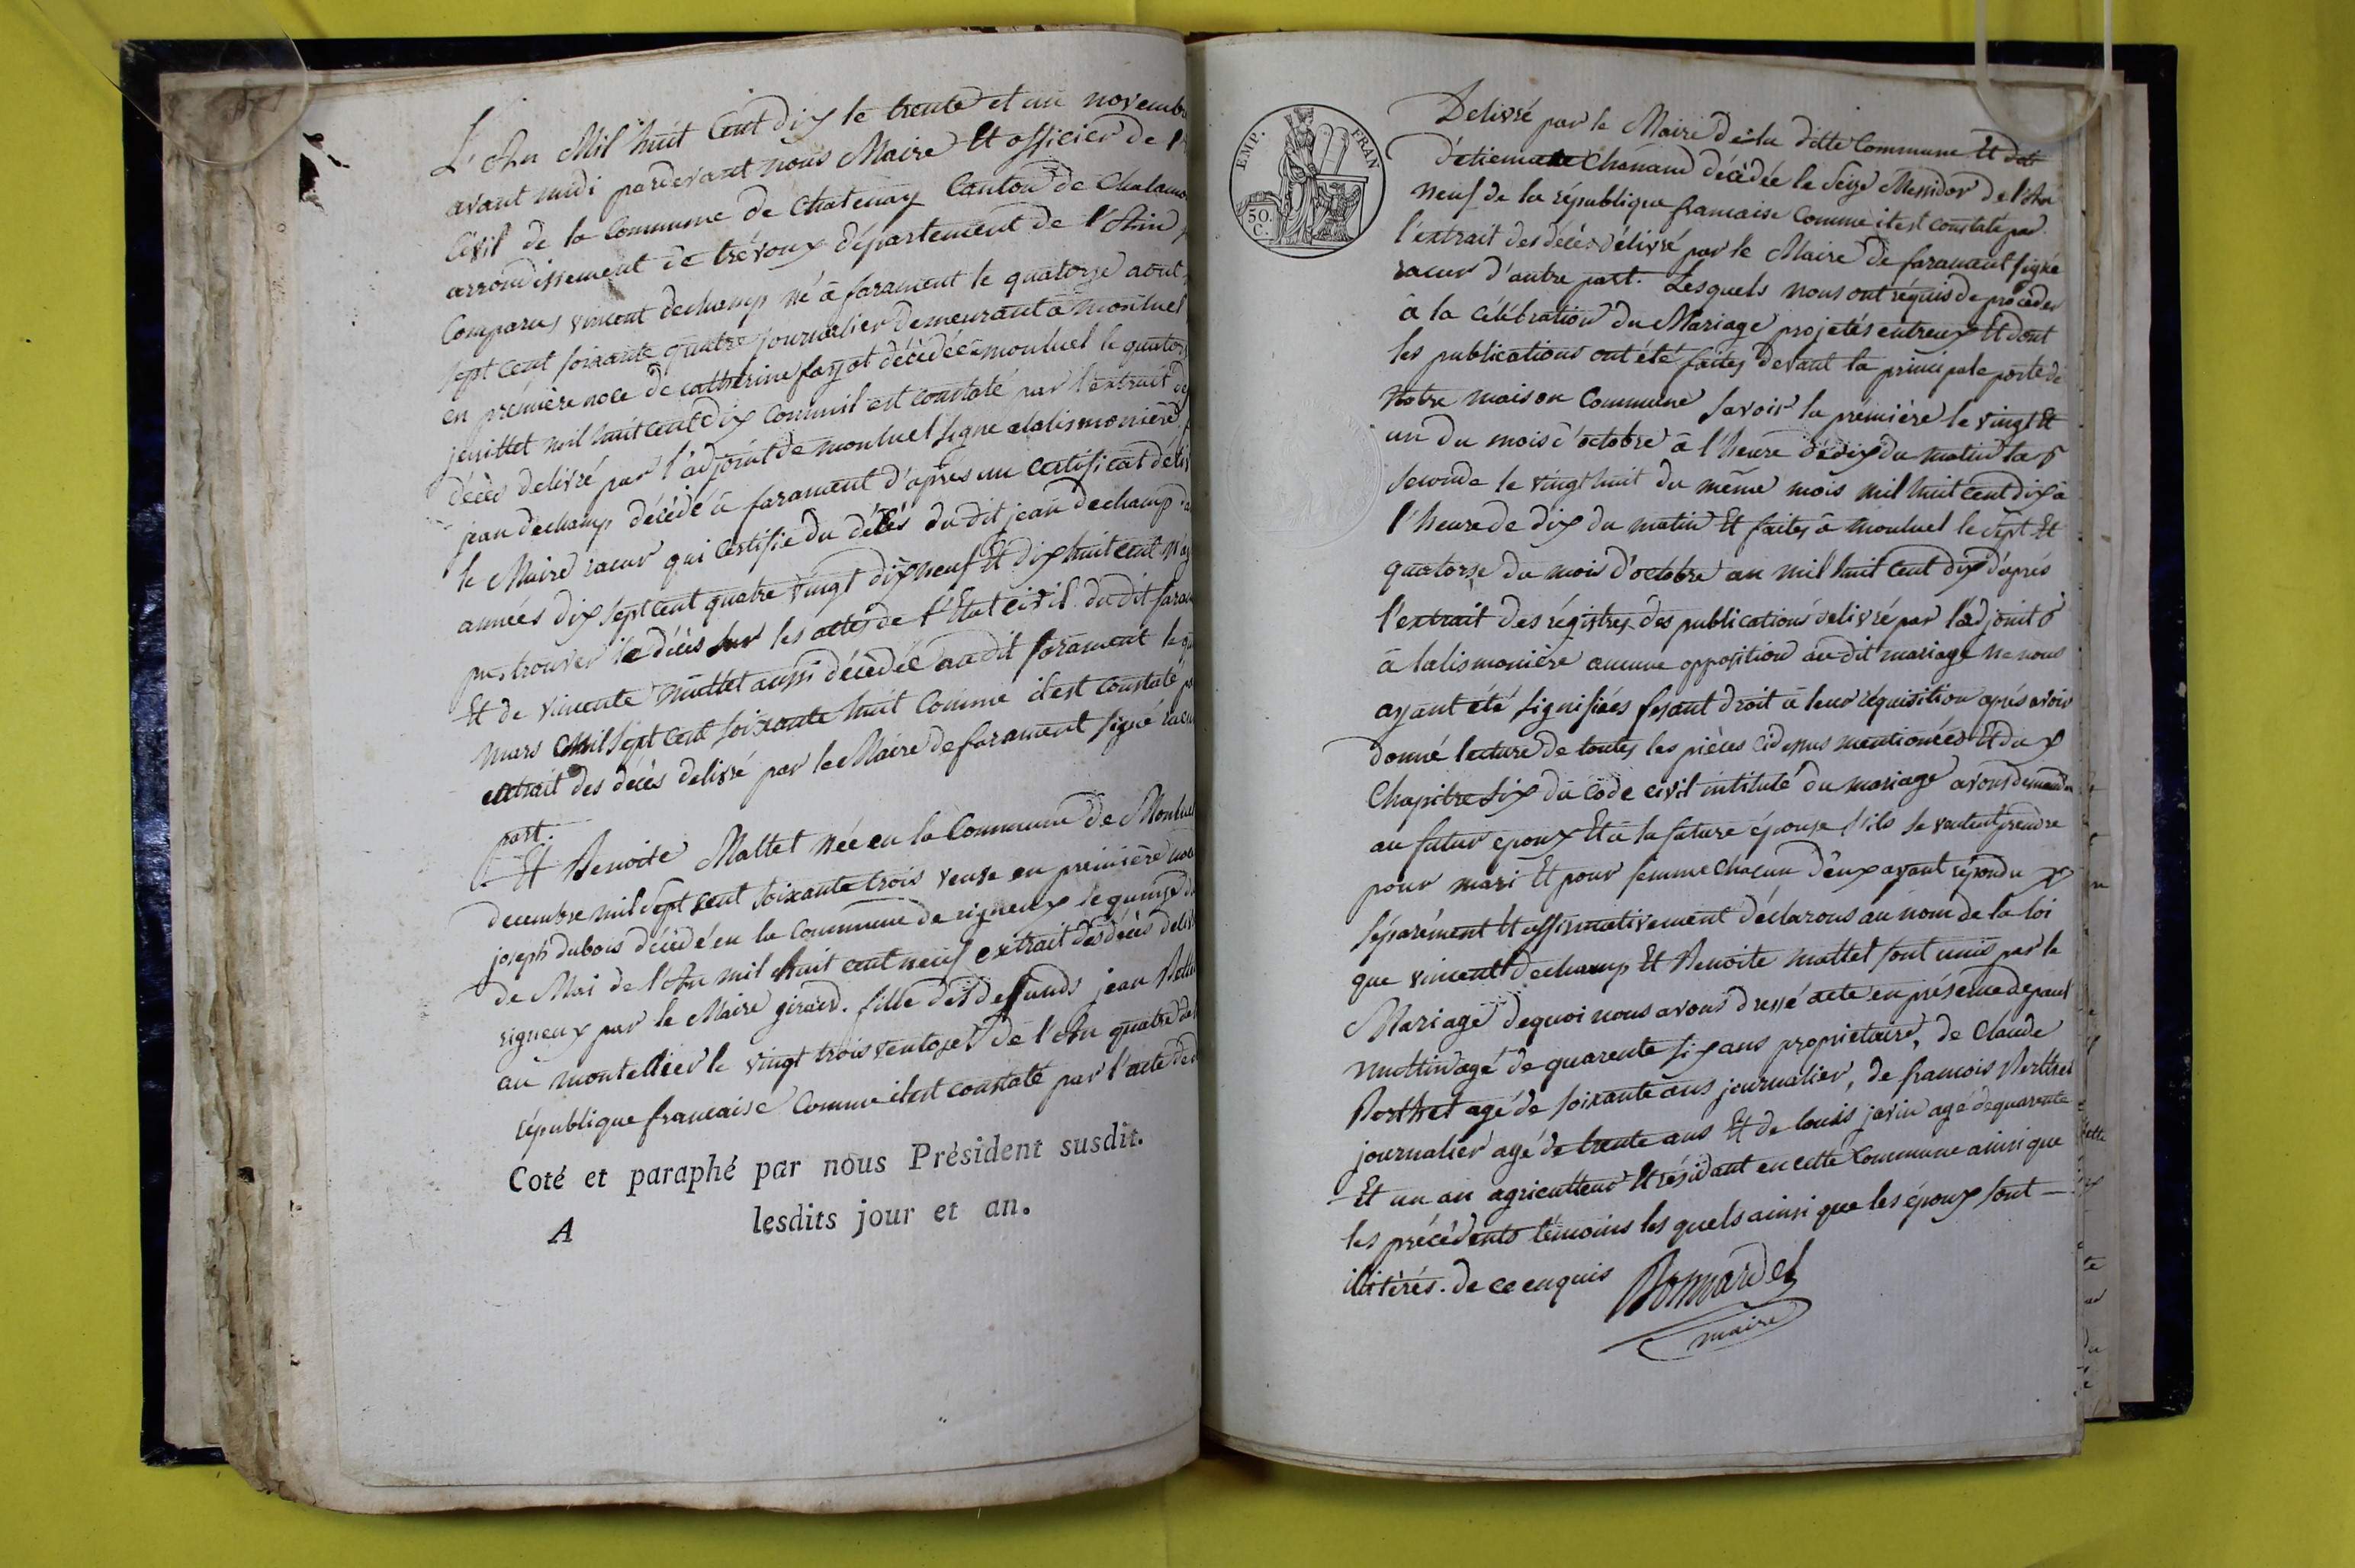 L'An Mil huit Cent dix le trente et un novemb
avant midi pardevant nous Maire Et officier de l'
Civil de la Commune de Chatenay Canton de Chalamo
arrondissement de trévoux département de l'Ain
Comparus vincent dechamp né à farament le quatorze aout
sept cent soixante quatre journalier demeurant à montluel
en première noce de catherine farjot décédée à montluel le quator
jeuillet mil huit cent dix comme il est constaté par l'extrait de
décès delivré par l'adjoint de montluel signe alalismonière
jean dechamp décédé à farament d'après un certificat déli
le Maire racur qui Certifie du décès du dit jean dechamp
années dix sept cent quatre vingt dix neuf Et dix huit cent n'a
pu trouver le décès sur les actes de l'Etat civil du dit fara
Et de vincente mullet aussi décédée audit farament le
mars Mil sept cent soixante huit Comme il est constaté
extrait des décès delivré par le Maire de farament signé racu
part.
Et Benoite Mallet née en la Commune de Montlue
decembre mil sept cent soixante trois veuve en première noce
joseph dubois décédé en la Commune de rigneux le quinze d
de Mai de l'An mil huit cent neuf extrait des décès deliv
rigneux par le Maire girard. fille des defunds jean
au montellier le vingt trois ventose de l'An quatre de
république francaise Comme il est constaté par l'acte de
Coté et paraphé par nous Président susdit.
A lesdits jour et an.
EMP. FRAN
50. C.
Delivré par le Maire de la ditte Commune Et de
d'étiennete Chanand décédée le Seize Messidor de l'An
neuf de la république francaise Comme il est constaté par
l'extrait des décès délivré par le Maire de faramant signé
racur d'autre part. Lesquels nous ont réquis de procéder
à la célébration du Mariage projetés entreux Et dont
les publications ont été faites devant la principale porte de
Notre maison Commune Savoir la prémière le vingt Et
un du mois d'octobre à l'heure de dix du matin la
seconde le vingt huit du même mois mil huit cent dix à
l'heure de dix du matin Et faites à montluel le sept Et
quatorze du mois d'octobre an mil huit cent dix d'après
l'extrait des régistres des publications délivré par l'adjoint
à lalismonière aucune opposition audit mariage ne nous
ayant été signifiées fesant droit à leur réquisition après avoir
donné lecture de toutes les pièces cidessus mentionées Et du
Chapitre six du code civil intitulé du mariage avons demandé
au futur epoux Et à la future épouse s'ils se veulent prendre
pour mari Et pour femme chacun d'eux ayant répondu
séparément Et affirmativement déclarons au nom de la loi
que vincent dechamp Et Benoite mallet sont unis par le
Mariage dequoi nous avons dressé acte en présence de paul
muttin agé de quarente six ans propriétaire, de Claude
Berthet agé de soixante ans journalier, de francois Berthet
journalier agé de trente ans Et de louis javin agé de quarente
Et un an agriculteur Et résidant en cette Commune ainsi que
les précédents témoins les quels ainsi que les époux sont
illitérés. de ce enquis Bonnardel
maire